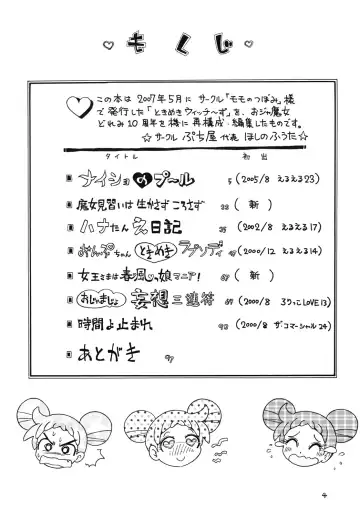 ♡ もくじ ♡
この本は2007年5月にサークル「モモのつぼみ」様
で発行した「ときめきウィッチ〜ず」を、おジャ魔女
どれみ10周年を機に再構成・編集したものです。
☆サークル ぷち屋 代表 ほしのふうた☆
タイトル 初出
ナイショのプール 5 (2005/8 えるえる23)
魔女見習いは生かさずころさず 23 (新)
ハナたん え日記 (2002/8 えるえる17)
おんぷちゃん ときめき ラプソディ (2000/12 えるえる14)
女王さまは春風っ娘マニア! (新)
おじゃましょ 妄想三連符 69 (2000/8 ろりこLOVE13)
時間よ止まれ 93 (2000/8 ザコマーシャル24)
あとがき 97
4